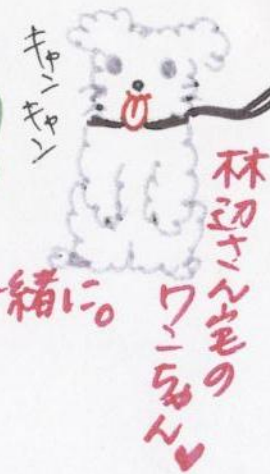 キャンキャン
林辺さん宅の
ワンちゃん♥
緒に。